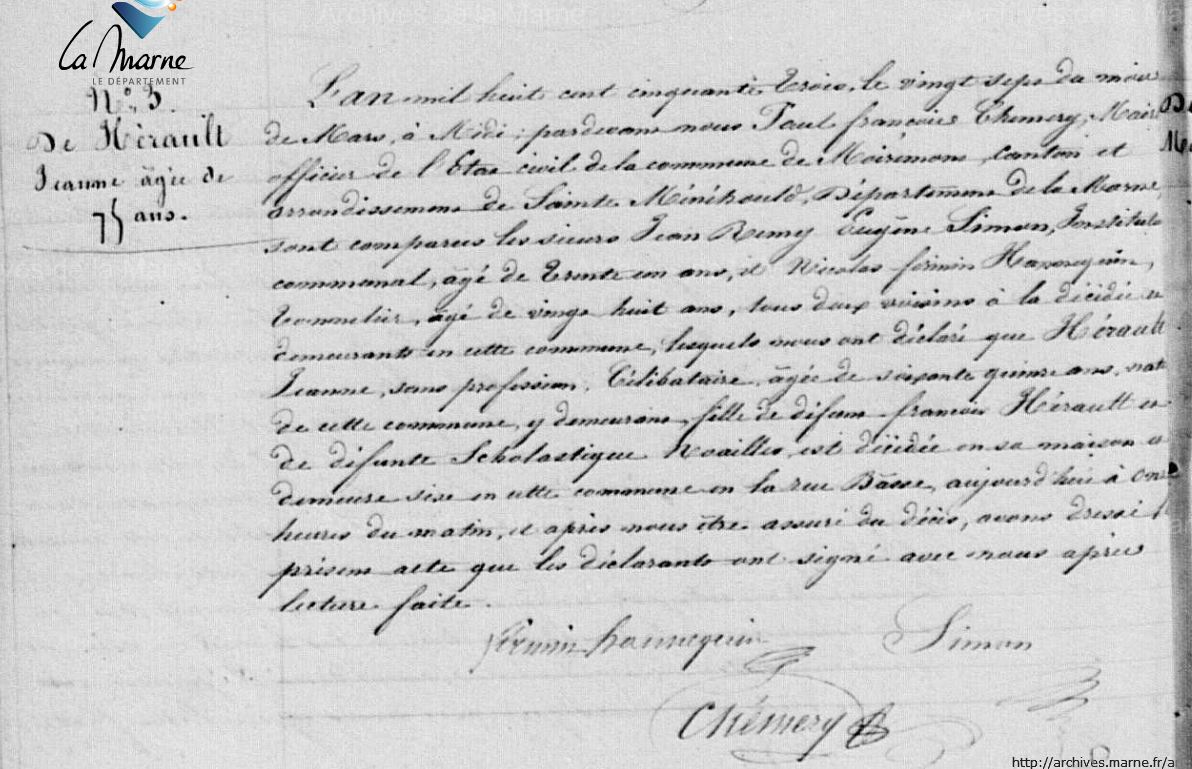 La Marne
LE DÉPARTEMENT
N° 5.
De Hérault
Jeanne âgée de
75 ans.
L'an mil huit cent cinquante trois, le vingt sept du mois
de Mars, à Midi ; pardevant nous Paul françois Chémery, Maire
officier de l'Etat civil de la commune de Moiremont, canton et
arrondissement de Sainte Ménéhould, Département de la Marne,
sont comparus les sieurs Jean Remy Eugène Simon, Institute
communal, âgé de trente un ans, et Nicolas firmin Hannequin,
tonnelier, âgé de vingt huit ans, tous deux voisins à la décédée et
demeurants en cette commune, lesquels nous ont déclaré que Hérault
Jeanne, sans profession, Célibataire, âgée de soixante quinze ans, nat
de cette commune, y demeurant, fille de défunt françois Hérault et
de défunte Scholastique Noailles, est décédée en sa maison et
demeure sise en cette commune en la rue Basse, aujourd'hui à onz
heures du matin, et après nous être assuré du décès, avons dressé l
présent acte que les déclarants ont signé avec nous après
lecture faite.
firmin hannequin
Simon
Chémery
De
http://archives.marne.fr/a